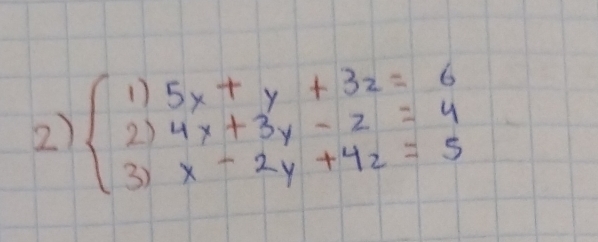 2) { 1) 5x + y + 3z = 6
2) 4x + 3y - z = 4
3) x - 2y + 4z = 5